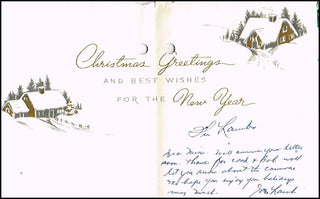 Christmas Greetings
AND BEST WISHES
FOR THE New Year
The Lambs
Dear Miss, Will answer your letter
soon. Thanks for card & book will
let you know about the cameras
hope you enjoy your holidays
very much. Joe Lamb